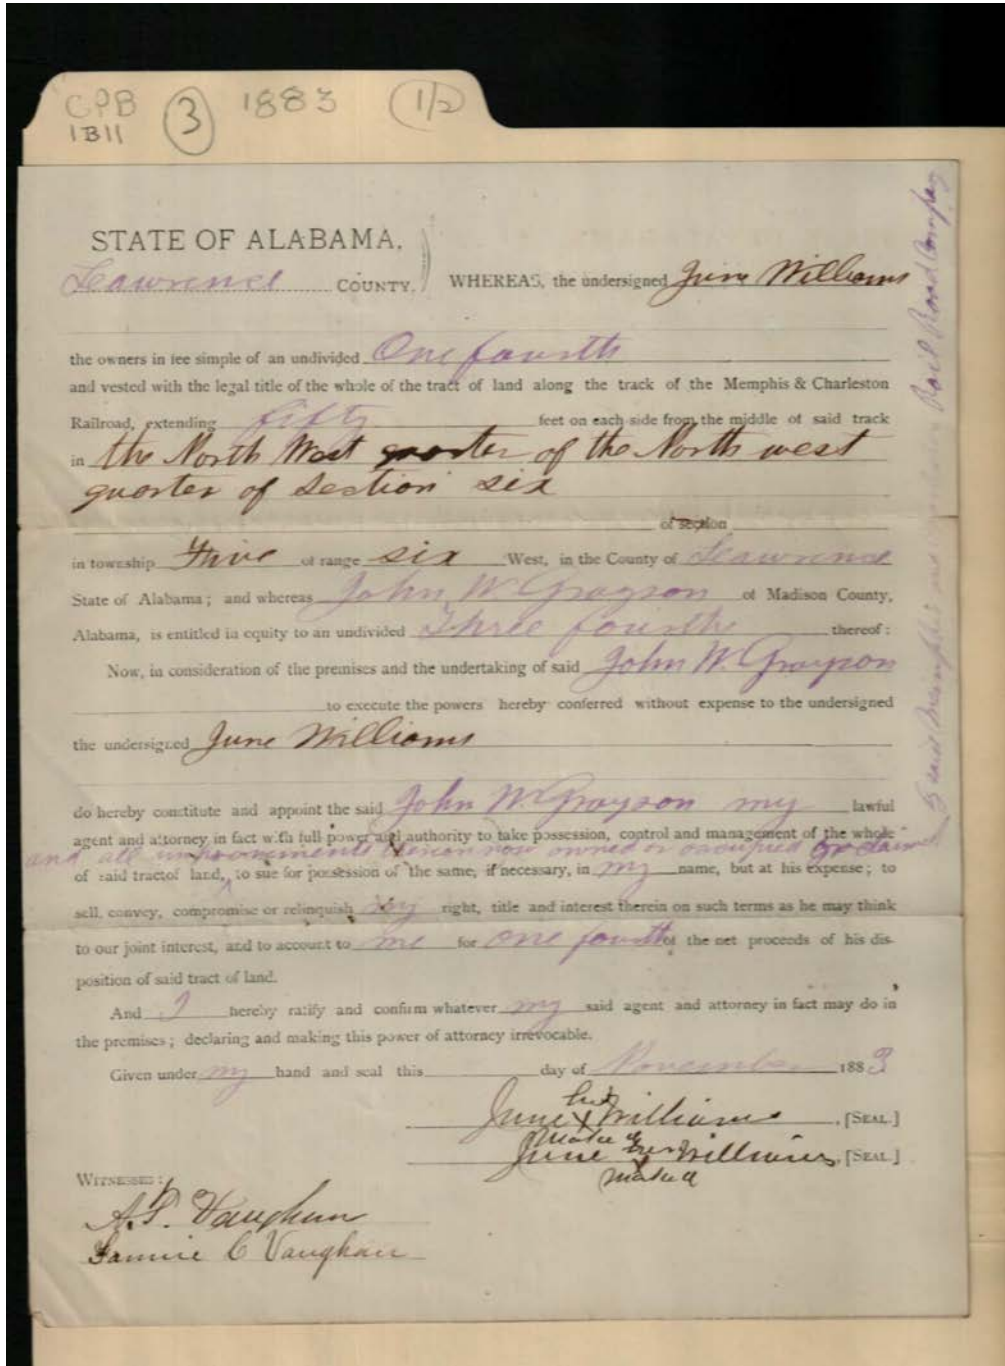 CPB 3 1883 1/2
1B11
STATE OF ALABAMA,
Lawrence COUNTY. WHEREAS, the undersigned June Williams
the owners in fee simple of an undivided One fourth
and vested with the legal title of the whole of the tract of land along the track of the Memphis & Charleston
Railroad, extending fifty feet on each side from the middle of said track
in the North West quarter of the North west
quarter of Section six
of section
in township Five of range six West, in the County of Lawrence
State of Alabama; and whereas John W Grayson of Madison County,
Alabama, is entitled in equity to an undivided Three fourths thereof:
Now, in consideration of the premises and the undertaking of said John W. Grayson
to execute the powers hereby conferred without expense to the undersigned
the undersigned June Williams
do hereby constitute and appoint the said John W Grayson my lawful
agent and attorney in fact with full power and authority to take possession, control and management of the whole
and all improvements thereon now owned or occupied or claimed
by said Memphis and Rail Road Company
of said tractof land, to sue for possession of the same, if necessary, in my name, but at his expense; to
sell, convey, compromise or relinquish my right, title and interest therein on such terms as he may think
to our joint interest, and to account to me for one fourth of the net proceeds of his dis-
position of said tract of land.
And I hereby ratify and confirm whatever my said agent and attorney in fact may do in
the premises; declaring and making this power of attorney irrevocable.
Given under my hand and seal this day of November 1883
June X Williams, [SEAL.]
June Williams, [SEAL.]
WITNESSES:
A.P. Vaughan
Fannie C Vaughan